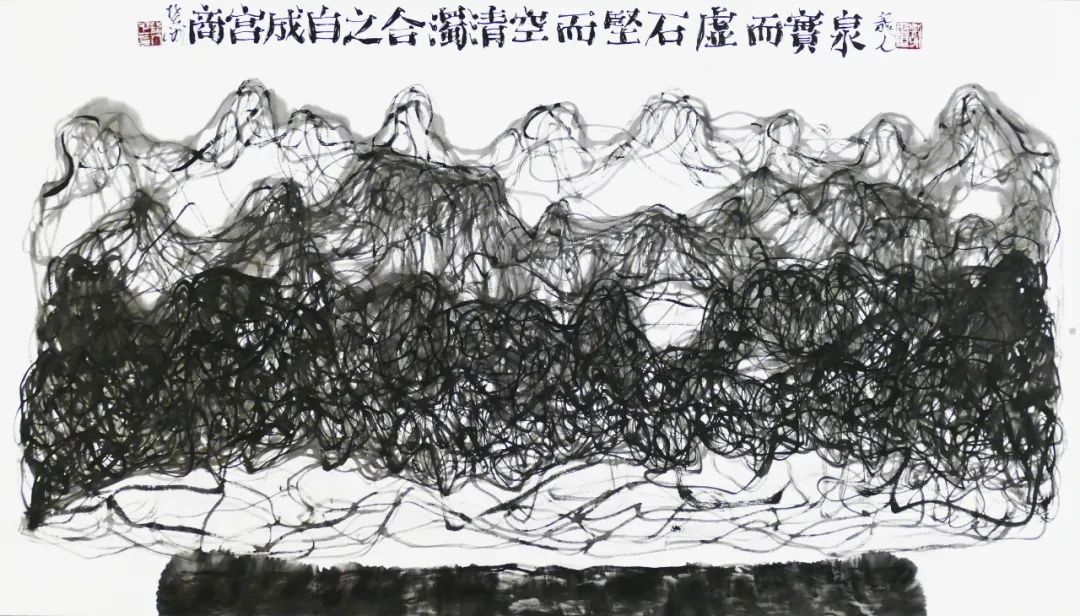 泉實而虛石堅而空清濁合之自成宮商